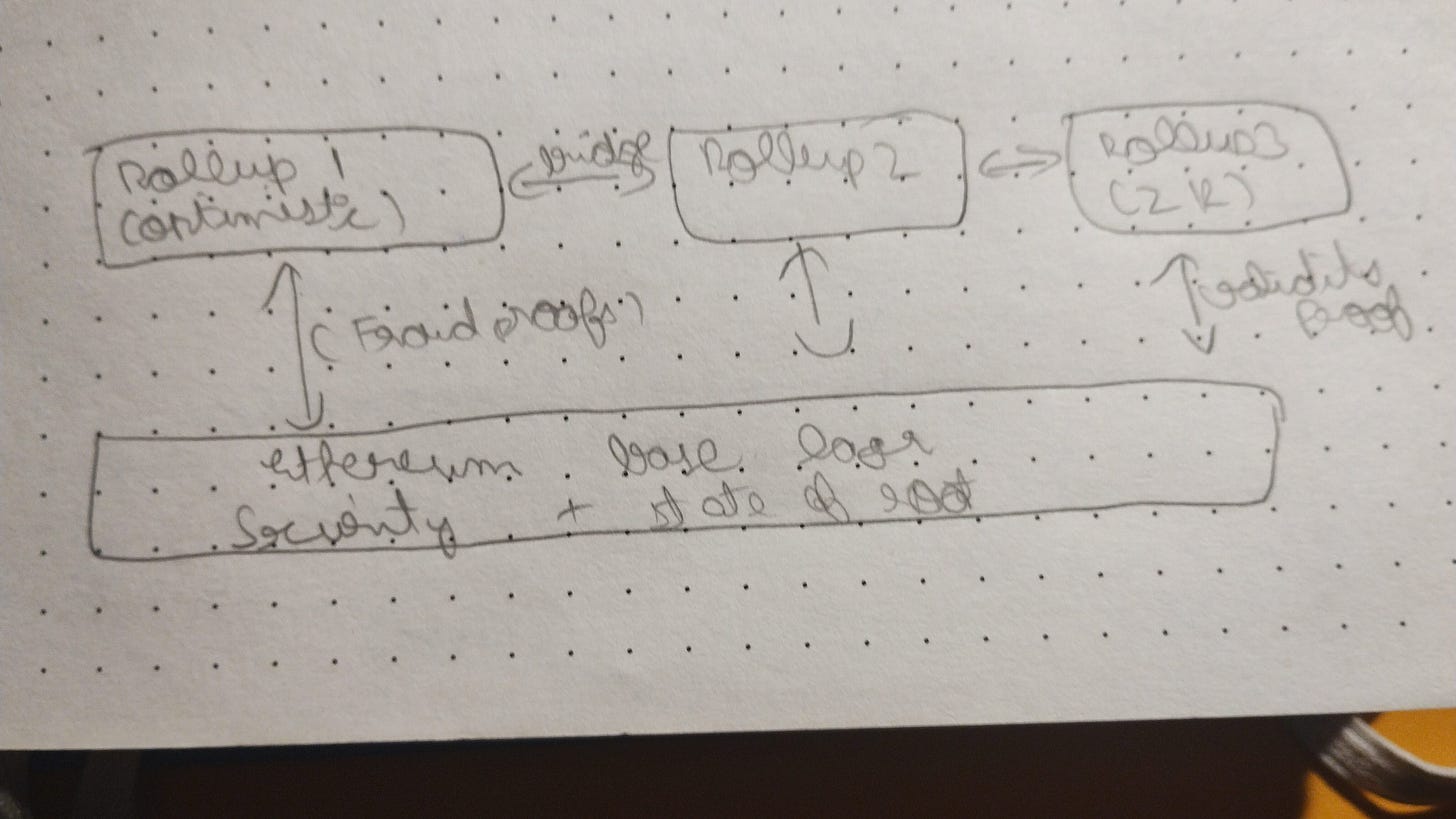 Rollup 1
(optimistic)
bridge
Rollup 2
Rollup 3
(ZK)
(Fraud proofs)
validity
proof
ethereum base layer
Security + state of root